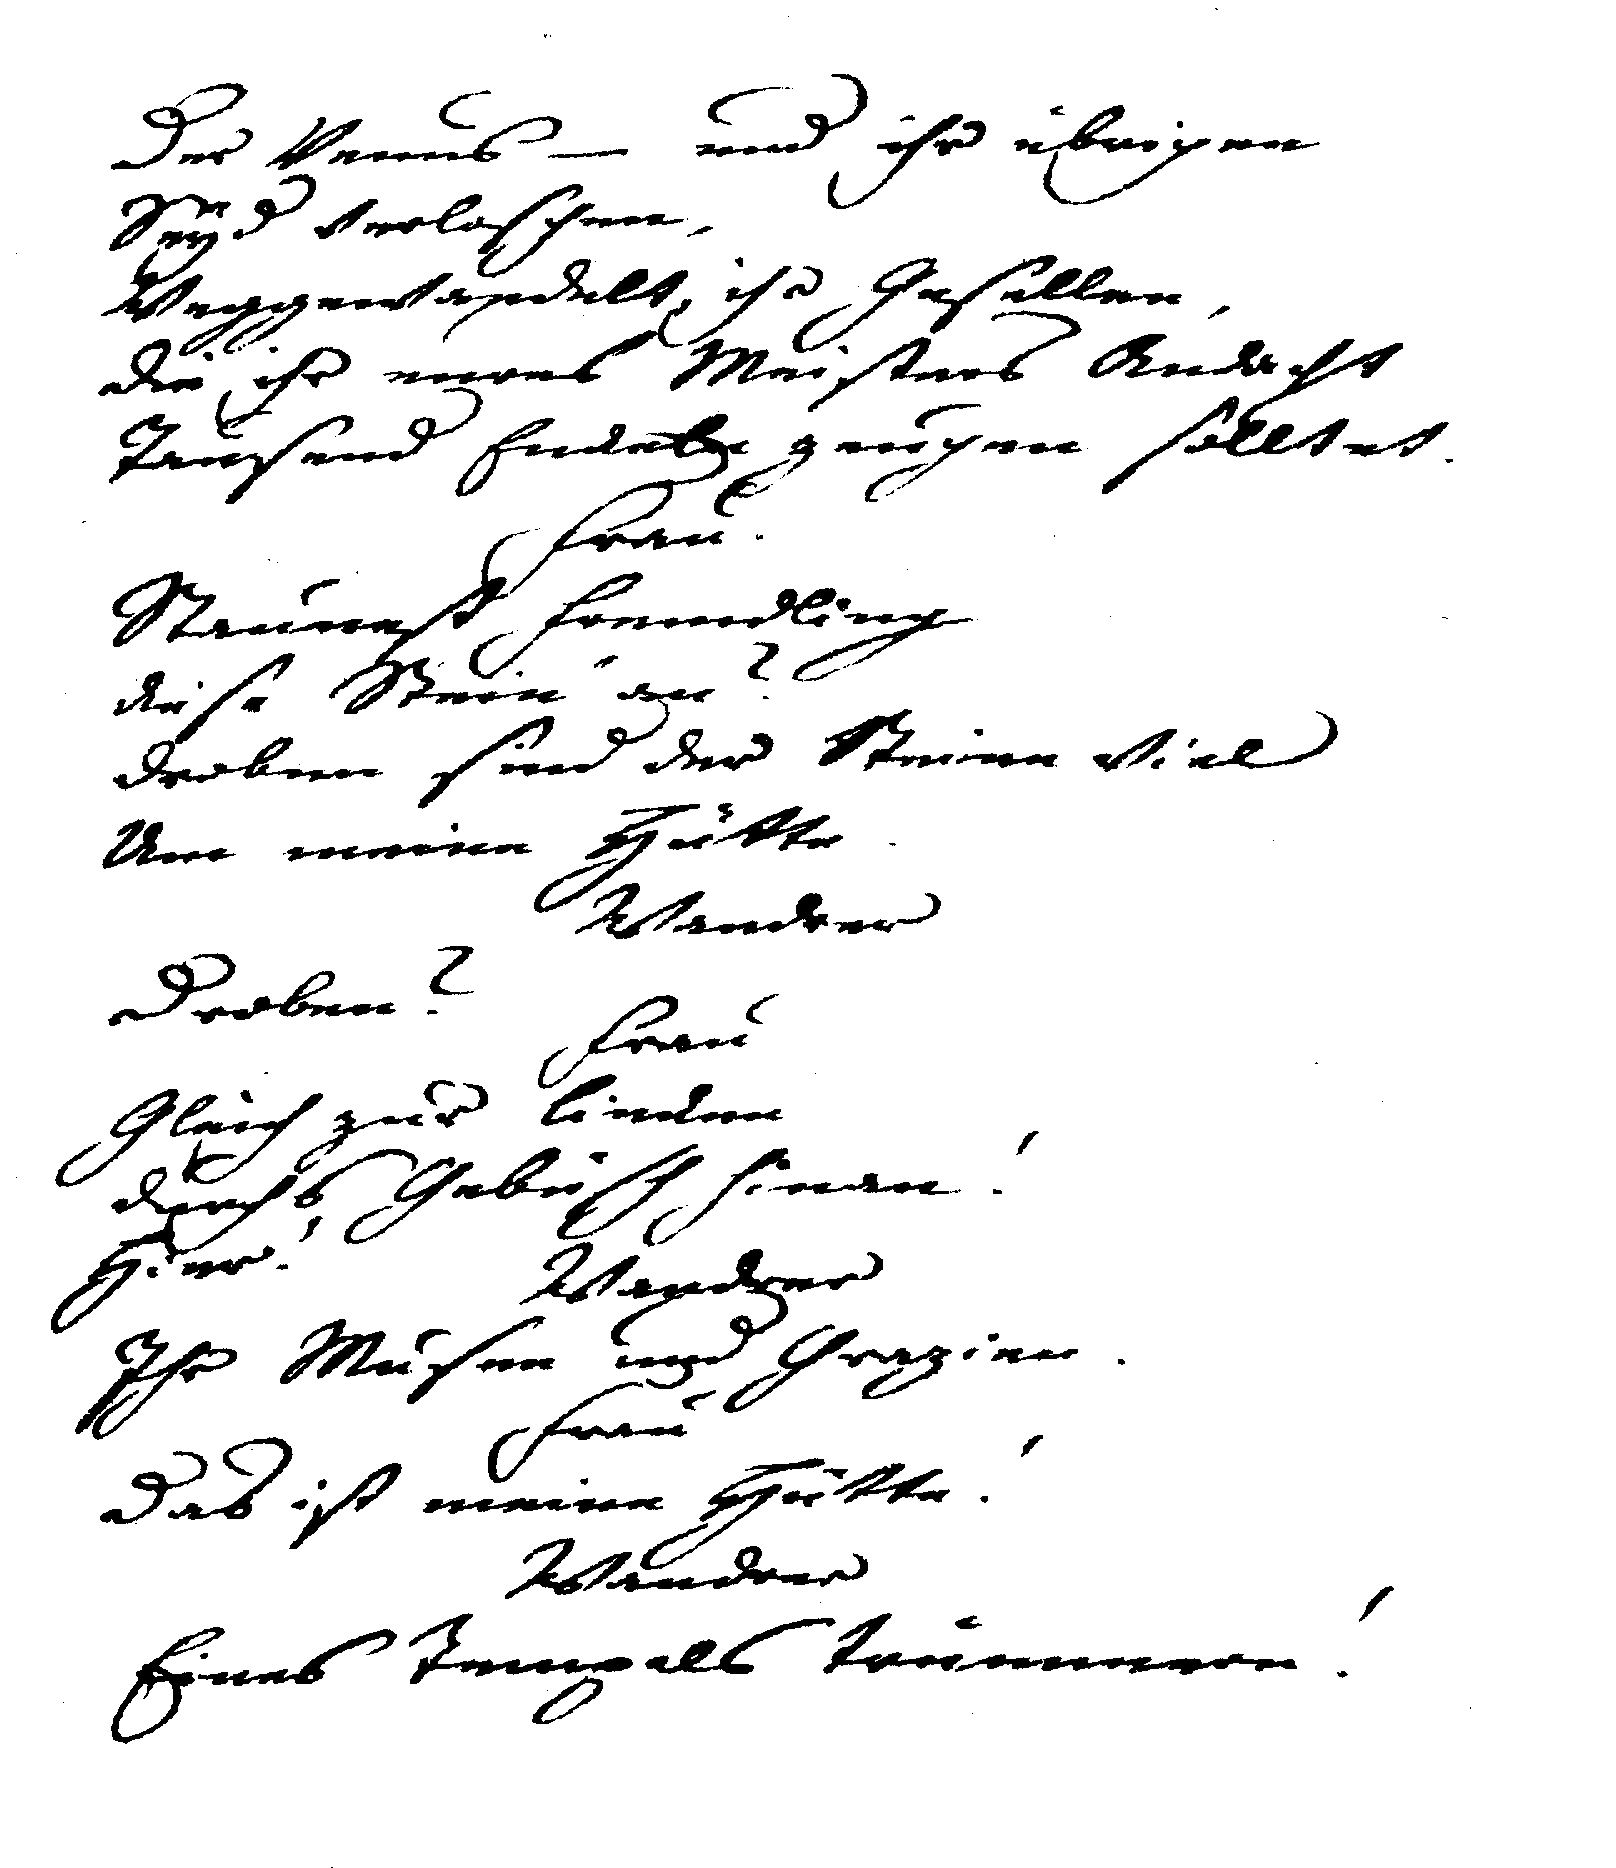 Der Venus — und ihr übrigen
Seyd verloschen,
Weggewandelt, ihr Gesellen,
die ihr eures Meisters Andacht
Tausend Enckeln zeugen solltet.
Frau.
Staunest Fremdling
diese Stein' an?
droben sind der Steine viel
Um meine Hütte.
Wandrer
Droben?
Frau
Gleich zur lincken
durchs Gebüsch hinan!
Hier!
Wandrer
Ihr Musen und Grazien.
Frau
Das ist meine Hütte!
Wandrer
Eines Tempels trümmern!